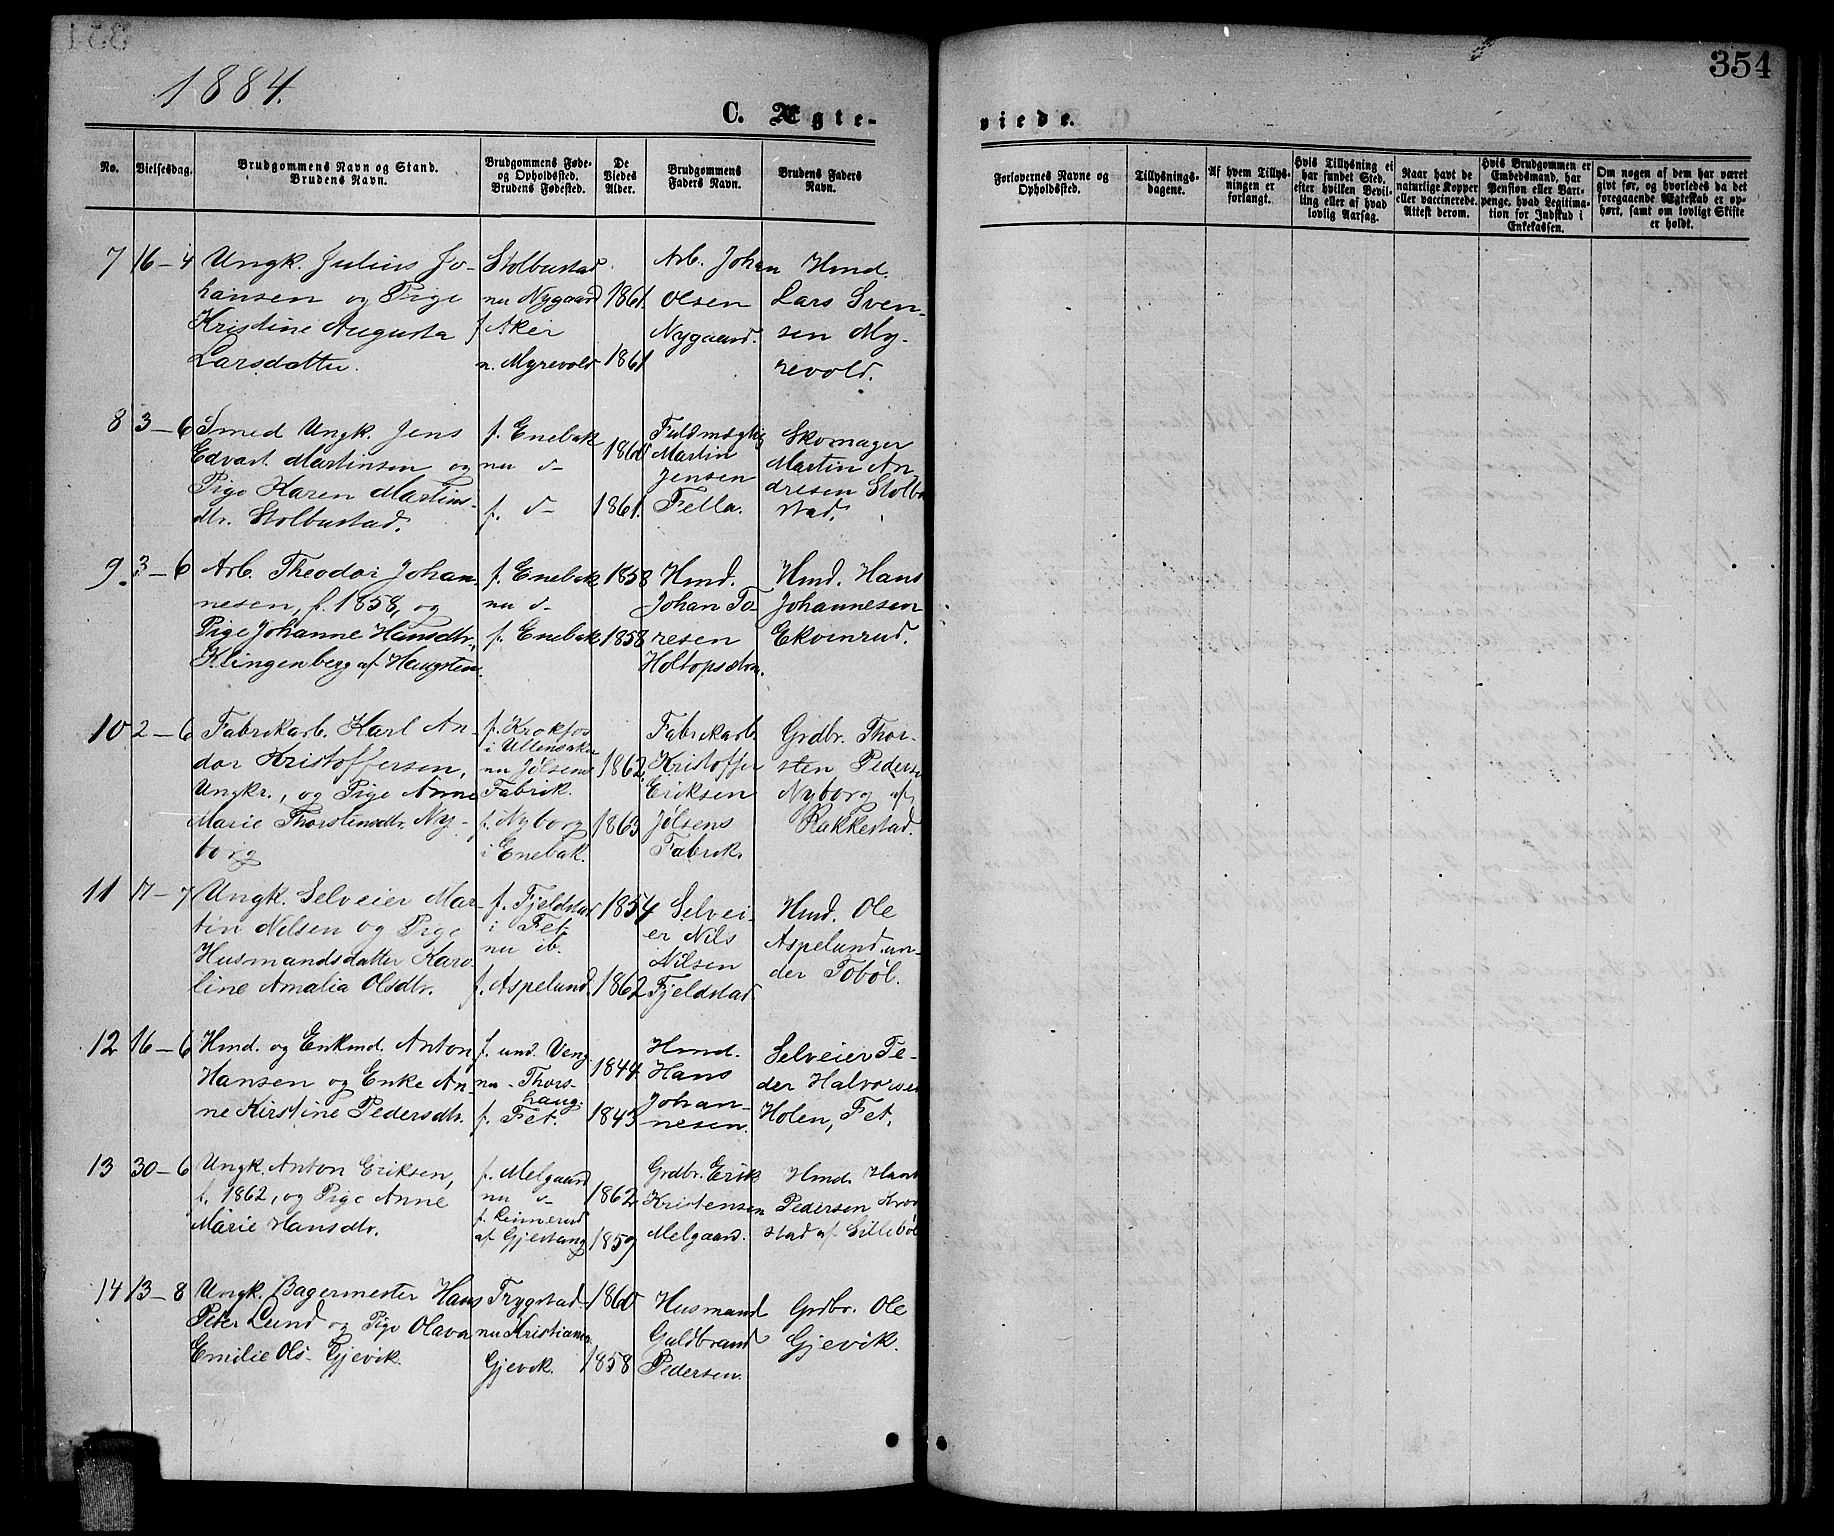 1884.
354
C. Ægte-
viede.
No.
Vielsesdag.
Brudgommens Navn og Stand.
Brudens Navn.
Brudgommens Føde-
og Opholdssted.
Brudens Fødested.
De
Viedes
Alder.
Brudgommens
Faders Navn.
Brudens Faders
Navn.
Forlovernes Navne og
Opholdssted.
Tillysnings-
dagene.
Af hvem Tillys-
ningen er
forlangt.
Hvis Tillysning ei
har fundet Sted,
efter hvilken Bevil-
ling eller af hvad
lovlig Aarsag.
Naar havt de
naturlige Kopper
eller vaccinerede.
Attest derom.
Hvis Brudgommen er
Embedsmand, har
Pension eller Vart-
penge, hvad Legitima-
tion for Indskud i
Enkekassen.
Om nogen af dem har været
gift før, og hvorledes da det
foregaaende Ægteskab er op-
hørt, samt om lovligt Skifte
er holdt.
7
16-4
Ungk. Julius Jo-
hansen og Pige
Kristine Augusta
Larsdatter.
Stolbustad
nu Nygaard
f. Aker
n. Myrevold
1861.
1861
Arb. Johan
Olsen
Nygaard.
Hmd.
Lars Sven-
sen My-
revold.
8
3-6
Smed Ungk. Jens
Edvart Martinsen og
Pige Karen Martins-
dtr. Stolbustad.
f. Enebak
nu d-
f. d-
1860
1861.
Fuldmægtig
Martin
Jensen
Fella.
Skomager
Martin An
dresen Stolbu
stad.
9.
3-6
Arb. Theodor Johan
nesen, f. 1858, og
Pige Johanne Hansdtr.
Klingenberg af Haugsten.
f. Enebak
nu d-
f. Enebak
1858
1858
Hmd.
Johan To
resen
Holtopsetra.
Hmd. Hans
Johannesen
Ekvenrud.
10
2-6
Fabrikarb. Karl An-
dor Kristoffersen,
Ungkr., og Pige Anne
Marie Thorstensdtr. Ny-
borg
f. Krokfos
i Ullensaker
nu Jølsens
Fabrik.
f. Nyborg
i Enebak.
1862
1863
Fabrikarb.
Kristoffer
Eriksen
Jølsens
Fabrik.
Grdbr. Thor-
sten Peders.
Nyborg af
Rakkestad.
11
17-7
Ungk. Selveier Mar-
tin Nilsen og Pige
Husmandsdatter Karo
line Amalia Olsdtr.
f. Fjeldstad
i Fet
nu ib.
f. Aspelund.
1854
1862
Selvei-
er Nils
Nilsen
Fjeldstad
Hmd. Ole
Aspelund un-
der Tobøl.
12
16-6
Hmd. og Enkmd. Anton
Hansen og Enke An-
ne Kirstine Pedersdtr.
f. und. Veng
nu - Thors-
haug.
f. Fet.
1844
1843
Hmd.
Hans
Johan-
nesen.
Selveier Pe-
der Halvorsen
Holen, Fet.
13
30-6
Ungk. Anton Eriksen,
f. 1862, og Pige Anne
Marie Hansdtr.
f. Melgaard
nu d-
af Gjestang
1862
1859
Grdbr. Erik
Kristensen
Melgaard.
Hmd. Hans
Pedersen
stad af Sillebøl
14
13-8
Ungk. Bagermester Hans
Peter Lund og Pige Olava
Emilie Ols- Gjevik.
Trygstad
nu Kristiania
Gjevik.
1860
1858
Husmand
Guldbrand
Pedersen.
Grdbr. Ole
Gjevik.